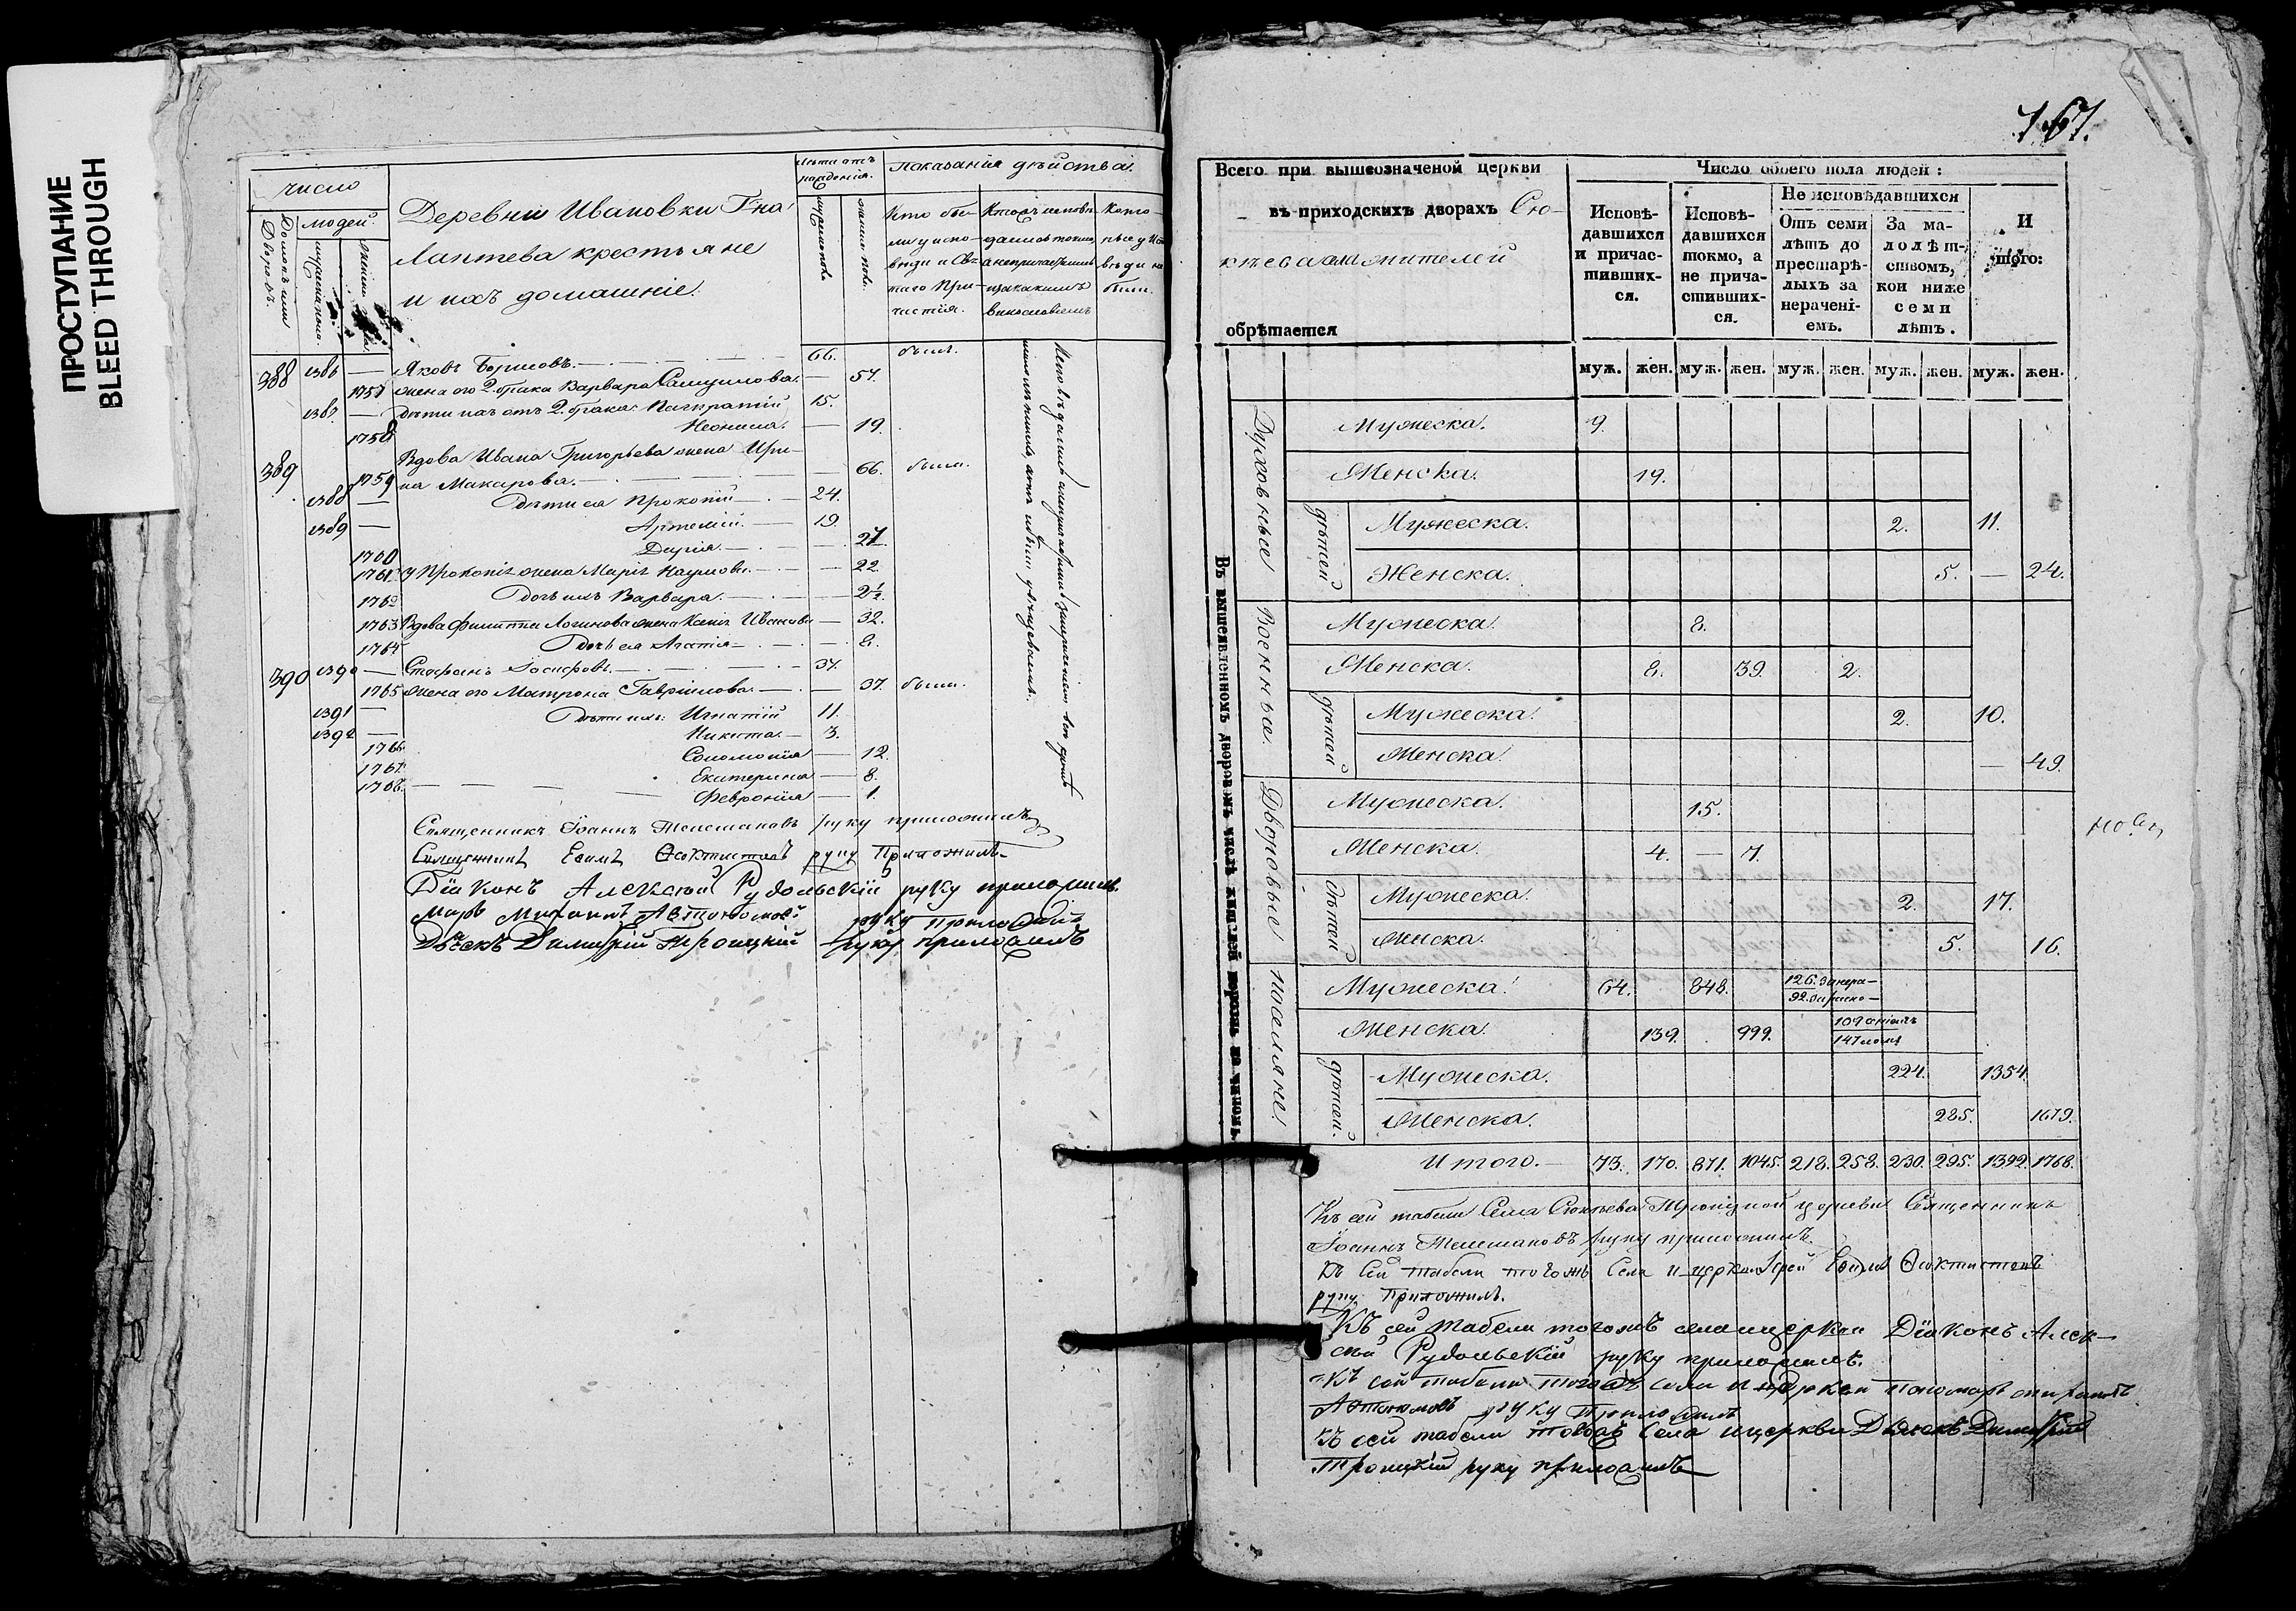 ПРОСТУПАНИЕ
BLEED THROUGH
число
Дворовъ.
людей.
Деревни Ивановки Г-на
Лаптева крестьяне
и ихъ домашніе.
Лѣта отъ
рожденія.
Показанія дѣйства.
Кто бы-
ли у испо-
вѣди и Свя-
таго При-
частія.
388 1386 — Яковъ Борисовъ. 66. были.
1757 жена его 2. брака Варвара Самуилова. — 57.
1387. — дѣти ихъ отъ 2. брака: Панкратій 15.
1758 Неонила. — 19.
389 Вдова Ивана Григорьева жена Ири-
1759 на Макарова. — 66. были.
1388 — Дѣти ея Прокопій 24.
1389 — Артемій. 19
1760 Дарія. — 21.
1761 У Прокопія жена Марія Наумова. — 22.
1762 Дочь ихъ Варвара. — 2½.
1763 Вдова Филиппа Логинова жена Ксенія Иванова — 32.
1764 Дочь ея Агатія — 8.
390 1390 — Стефанъ Іосифовъ. 37.
1765 жена его Матрона Гавріилова. — 37. были.
1391 — Дѣти ихъ: Игнатій 11.
1392 — Никита. 3.
1766 Соломонія — 12
1767. Екатерина — 8.
1768. Февронія — 1.
Священникъ Іоаннъ Телешаковъ руку приложилъ
Священникъ Ефимъ Ѳеоктистовъ руку Приложилъ
Діаконъ Алексѣй Рудольскій руку приложилъ
руку приложилъ
Дьячекъ Димитрій Троицкій руку приложилъ
167.
Всего при вышеозначеной церкви
въ приходскихъ дворахъ Сю-
кѣева жителей
обрѣтается
Число обоего пола людей:
Исповѣ-
давшихся
и причас-
тивших-
ся.
Исповѣ-
давшихся
токмо, а
не прича-
стивших-
ся.
Не исповѣдавшихся
Отъ семи
лѣтъ до
престарѣ-
лыхъ за
нерачені-
емъ.
За ма-
лолѣт-
ствомъ,
кои ниже
семи
лѣтъ.
И
того:
муж. жен. муж. жен. муж. жен. муж. жен. муж. жен.
Духовные
Мужеска. 9.
Женска. 19.
дѣтей
Мужеска. 2. 11.
Женска. 5. — 24.
Военные.
Мужеска. 8.
Женска. 8. 39. 2.
дѣтей
Мужеска. 2. 10.
Женска. — 49.
Дворовые
Мужеска. 15.
Женска. 4. — 7.
дѣтей
Мужеска. 2. 17.
Женска. 5. 16.
Поселяне.
Мужеска. 64. 848. 126. 92.
Женска. 139. 999. 109 147
дѣтей.
Мужеска. 224. 1354.
Женска. 285. 1679.
Итого. — 73. 170. 871. 1045. 218. 258. 230. 295. 1392. 1768.
Къ сей табели Села Сюкѣева Троицкой церкви Священникъ
Іоаннъ Телешаковъ руку приложилъ.
Къ Сей табели тогожъ Села и церкви Іерей Ефимъ Ѳеоктистовъ
руку Приложилъ.
Къ сей табели тогожъ села и церкви Діаконъ Алек-
сѣй Рудольскій руку приложилъ.
Къ сей табели тогожъ села и церкви пономарь
руку приложилъ
Къ сей табели тогожъ села и церкви Дьячекъ Димитрій
Троицкій руку приложилъ